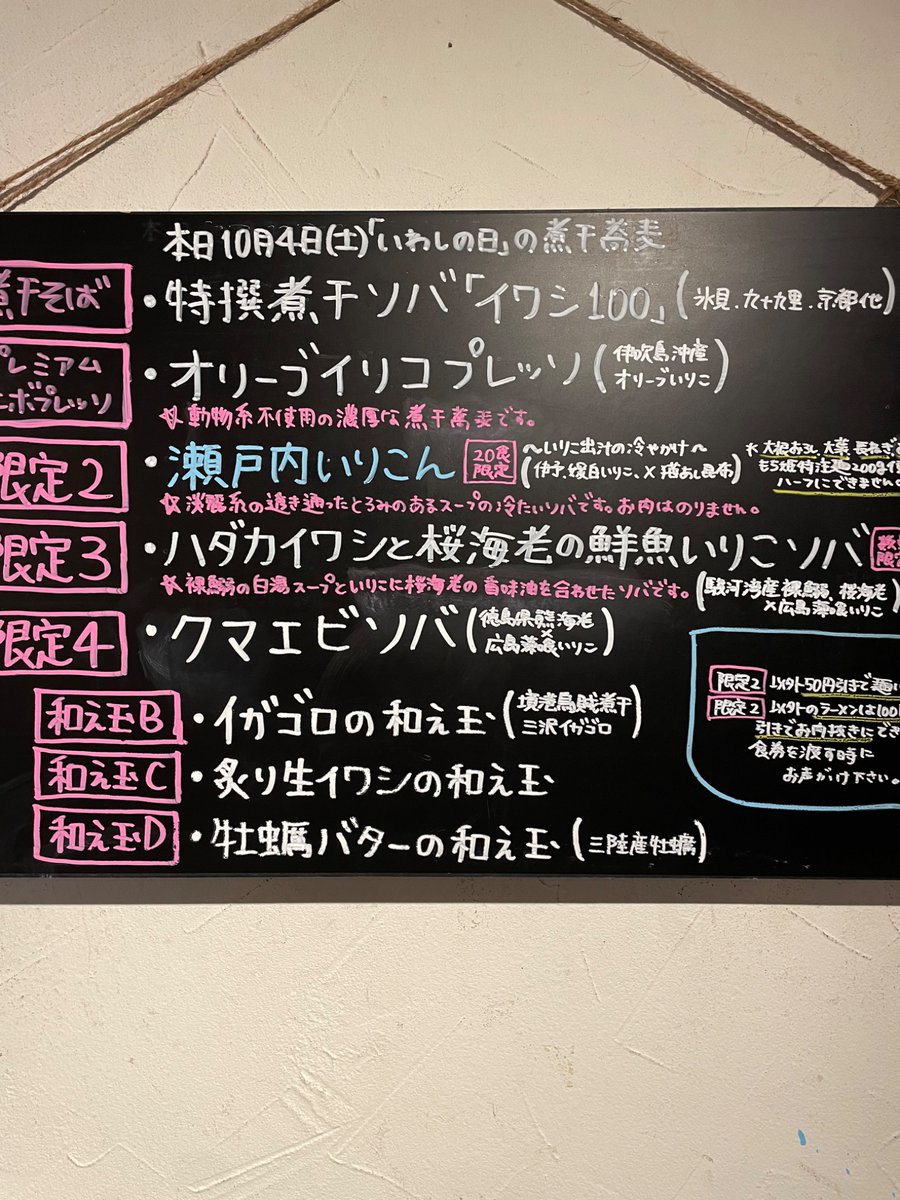 本日10月4日(土)「いわしの日」の煮干蕎麦
煮干そば
・特撰煮干ソバ「イワシ100」(氷見.九十九里.京都他)
プレミアム
ニボプレッソ
・オリーブイリコプレッソ(伊吹島沖産
オリーブいりこ)
動物系不使用の濃厚な煮干蕎麦です。
限定2
・瀬戸内いりこん
20食
限定
〜いりこ出汁の冷やかけ〜
(伊予.媛白いりこ、×猫あし昆布)
大根おろし 大葉 長ねぎ
もち姫特注麺200g
ハーフにできません。
淡麗系の透き通ったとろみのあるスープの冷たいソバです。お肉はのりません。
限定3
・ハダカイワシと桜海老の鮮魚いりこソバ
限定
裸鰯の白湯スープといりこに桜海老の香味油を合わせたソバです。
(駿河湾産裸鰯、桜海老
×広島藻喰いりこ)
限定4
・クマエビソバ(徳島県熊海老
×
広島藻喰いりこ)
限定2 以外50円引きで麺
限定2 以外のラーメンは100
引きでお肉抜きにでき
食券を渡す時に
お声がけ下さい。
和え玉B
・イガゴロの和え玉(境港烏賊煮干
三沢イガゴロ)
和え玉C
・炙り生イワシの和え玉
和え玉D
・牡蠣バターの和え玉(三陸産牡蠣)